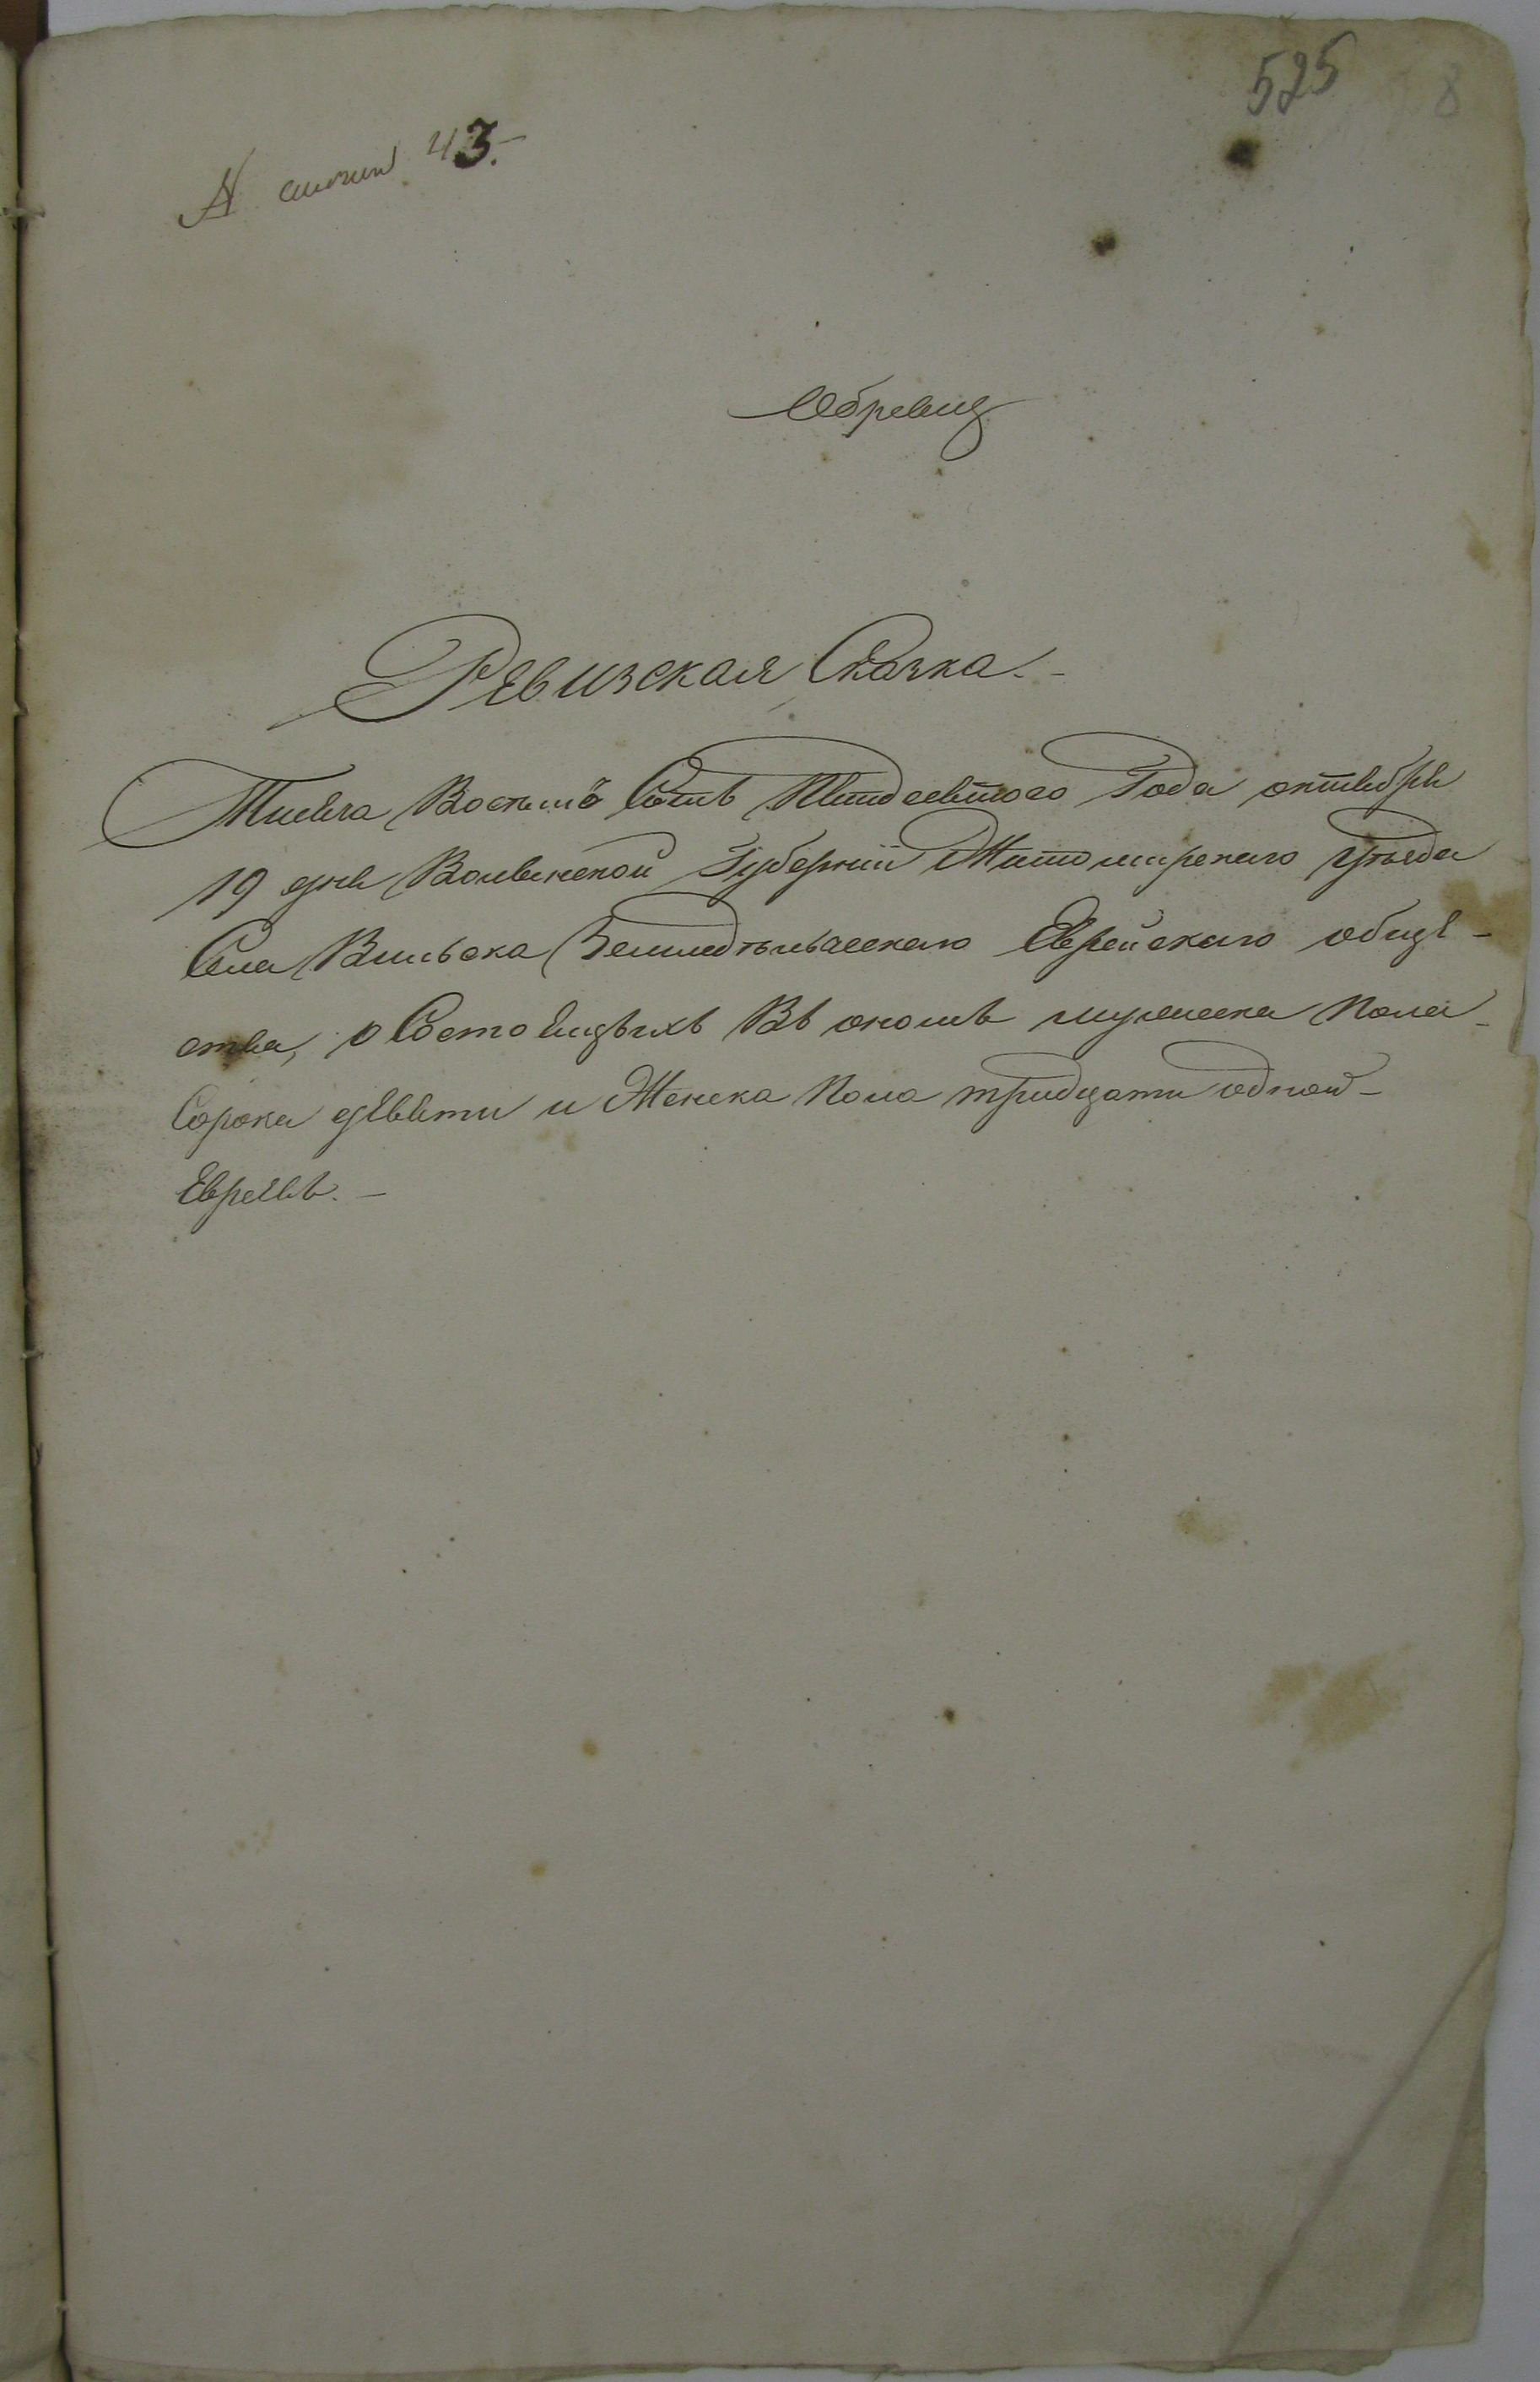 525
8
N 43.
Ревизская Сказка.
Тысяча Восемьсотъ Пятдесятого Года октября
19 дня Волынской Губерніи Житомирскаго уѣзда
Села Вильска Земледѣльческаго Еврейскаго обще-
ства, о Состоящихъ Въ ономъ мужеска Пола
Сорока девяти и Женска Пола тридцати одной
Евреевъ.